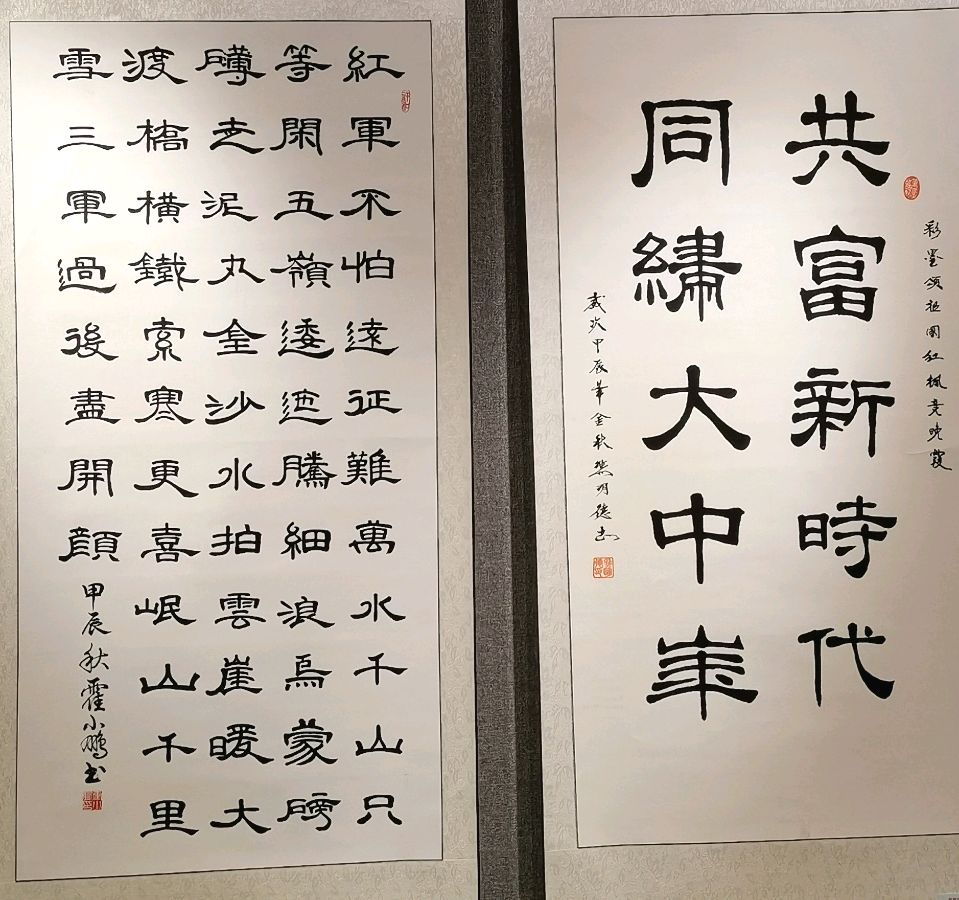 彩墨颂祖國红枫竞晚霞
共富新時代
同繡大中崋
歲次甲辰年金秋樊明德书
紅軍不怕遠征難萬水千山只
等閑五嶺逶迤騰細浪烏蒙磅
礴走泥丸金沙水拍雲崖暖大
渡橋橫鐵索寒更喜岷山千里
雪三軍過後盡開顏
甲辰秋霍小鹏书